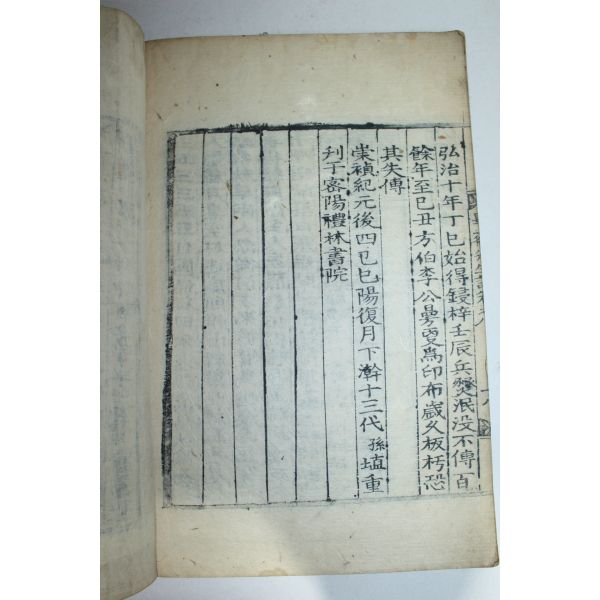 弘治十年丁巳始得鋟梓壬辰兵燹泯没不傳一百
餘年至己丑方伯李公曼更爲印布歲久板朽恐
其失傳
崇禎紀元後四己巳陽復月下澣十三代孫埴重
刋于密陽禮林書院